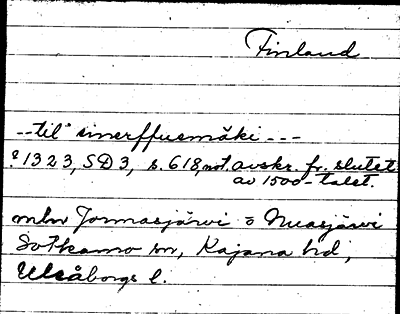 Finland
--til" simerffuemäki ---
? 1323, SD 3, s. 618, not. avskr. fr. slutet
av 1500-talet.
mln Jormasjärvi o Nuasjärvi
Sotkamo sn, Kajana hd,
Uleåborgs l.